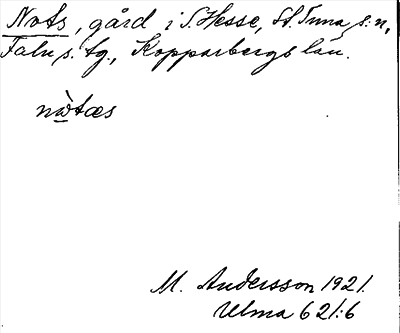 Nots, gård i S. Hesse, St. Tuna s:n,
Falu s. tg., Kopparbergs län.
nɯ̀tæs
M. Andersson 1921.
Ulma 621:6